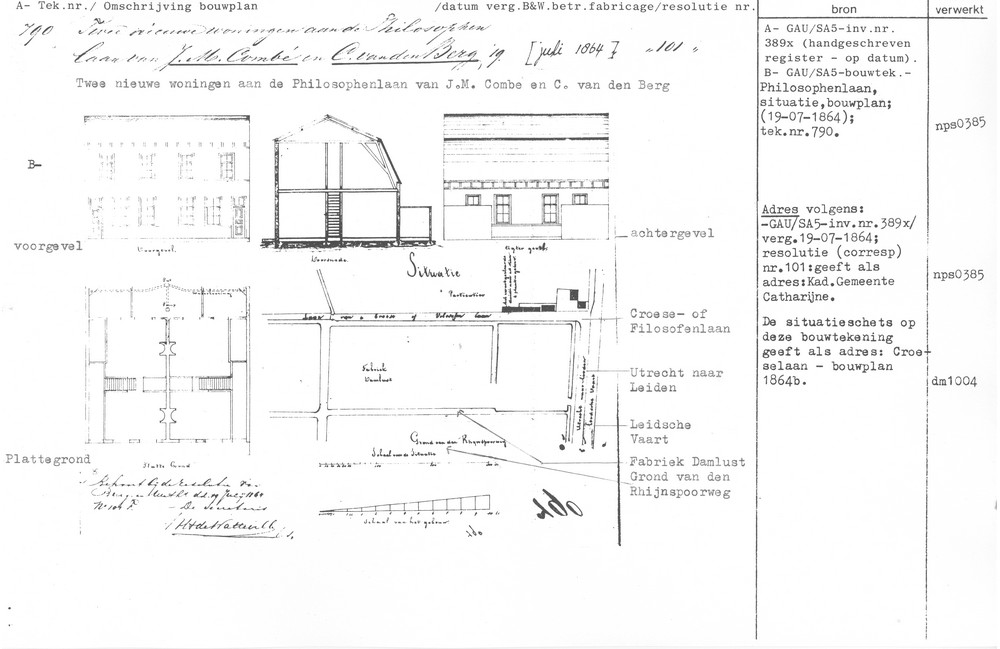 A- Tek.nr./ Omschrijving bouwplan /datum verg.B&W.betr.fabricage/resolutie nr.
bron
verwerkt
790 Twee nieuwe woningen aan de Philosophen
Laan van J.M. Combé en C. van den Berg, 19. [juli 1864] "101"
Twee nieuwe woningen aan de Philosophenlaan van J.M. Combe en C. van den Berg
B-
voorgevel
Voorgevel
Doorsnede
achtergevel
Situatie
Particulier
Croese- of
Filosofenlaan
Fabriek
Damlust
Utrecht naar
Leiden
Leidsche Vaart
Leidsche
Vaart
Grond van den Rhijnspoorweg
Schaal van de Situatie
Plattegrond
Platte Grond
Fabriek Damlust
Grond van den
Rhijnspoorweg
De Secretaris
Schaal van het gebouw
790
790
A- GAU/SA5-inv.nr.
389x (handgeschreven
register - op datum).
B- GAU/SA5-bouwtek.-
Philosophenlaan,
situatie,bouwplan;
(19-07-1864);
tek.nr.790.
nps0385
Adres volgens:
-GAU/SA5-inv.nr.389x/
verg.19-07-1864;
resolutie (corresp)
nr.101:geeft als
adres:Kad.Gemeente
Catharijne.
nps0385
De situatieschets op
deze bouwtekening
geeft als adres: Croe-
selaan - bouwplan
1864b.
dm1004